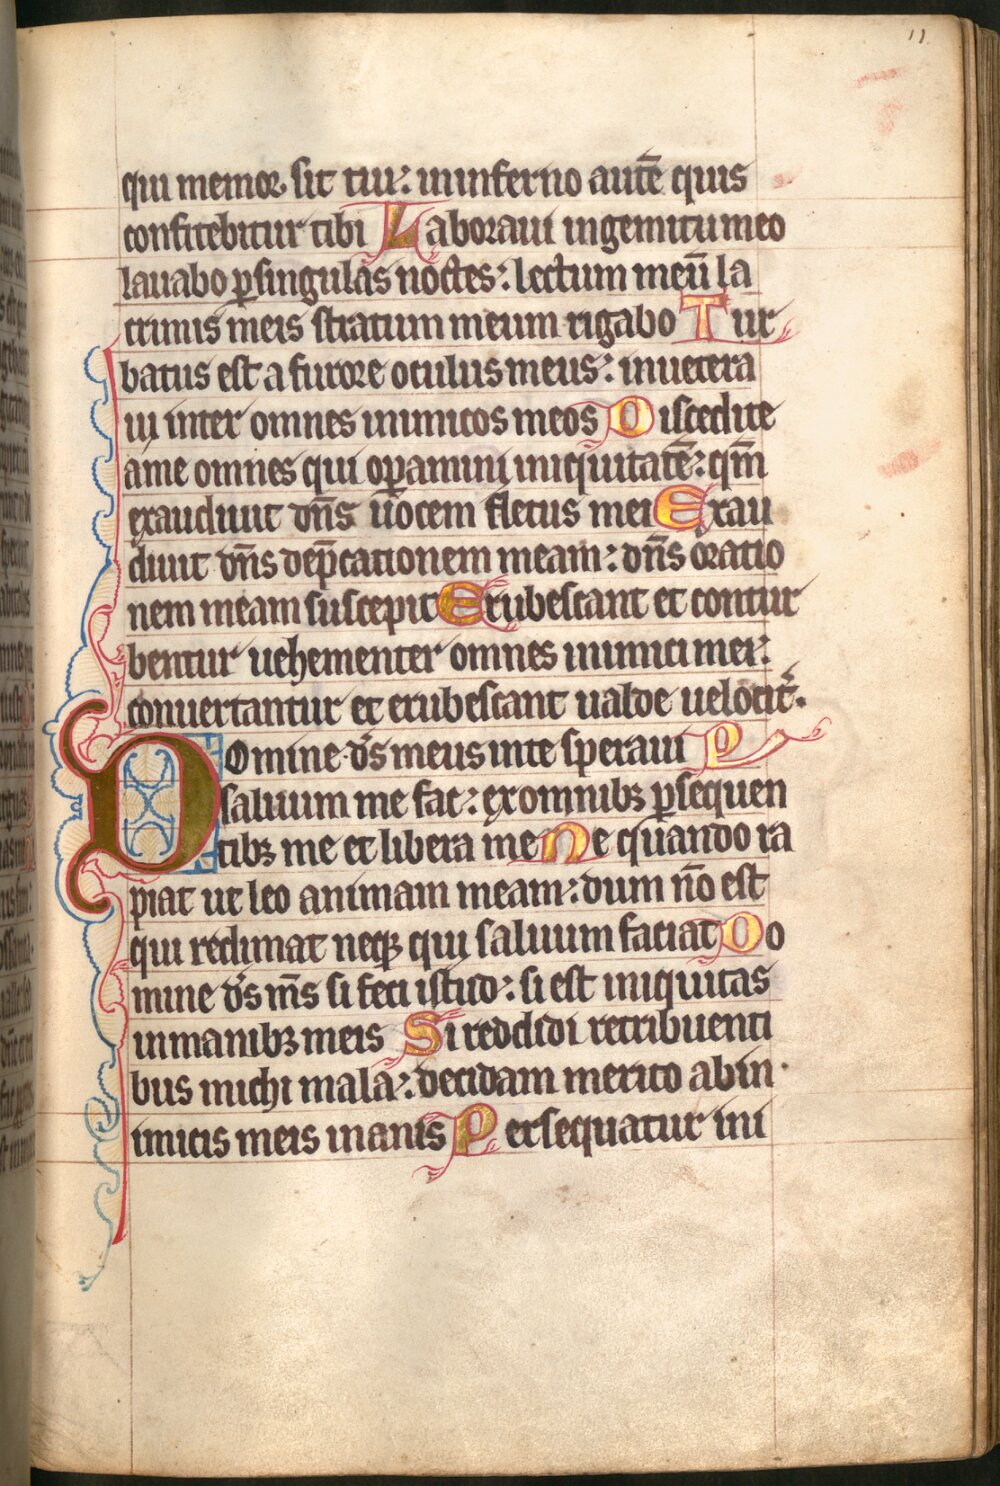 11
qui memor sit tui: in inferno autē quis
confitebitur tibi Laboraui in gemitu meo
lauabo ꝑ singulas noctes: lectum meū la
crimis meis stratum meum rigabo Tur
batus est a furore oculus meus: inuetera
ui inter omnes inimicos meos Discedite
a me omnes qui operamini iniquitatē: qm̄
exaudiuit dn̄s uocem fletus mei Exau
diuit dn̄s dep̄cationem meam: dn̄s oratio
nem meam suscepit Erubescant et contur
bentur uehementer omnes inimici mei:
conuertantur et erubescant ualde uelocit̾.
Domine ds̄ meus in te speraui
saluum me fac: ex omnibꝫ ꝑsequen P
tibꝫ me et libera me Ne quando ra
piat ut leo animam meam: dum nō est
qui redimat neqꝫ qui saluum faciat Do
mine ds̄ ms̄ si feci istud: si est iniquitas
in manibꝫ meis Si reddidi retribuenti
bus michi mala: decidam merito ab in
imicis meis inanis Persequatur ini